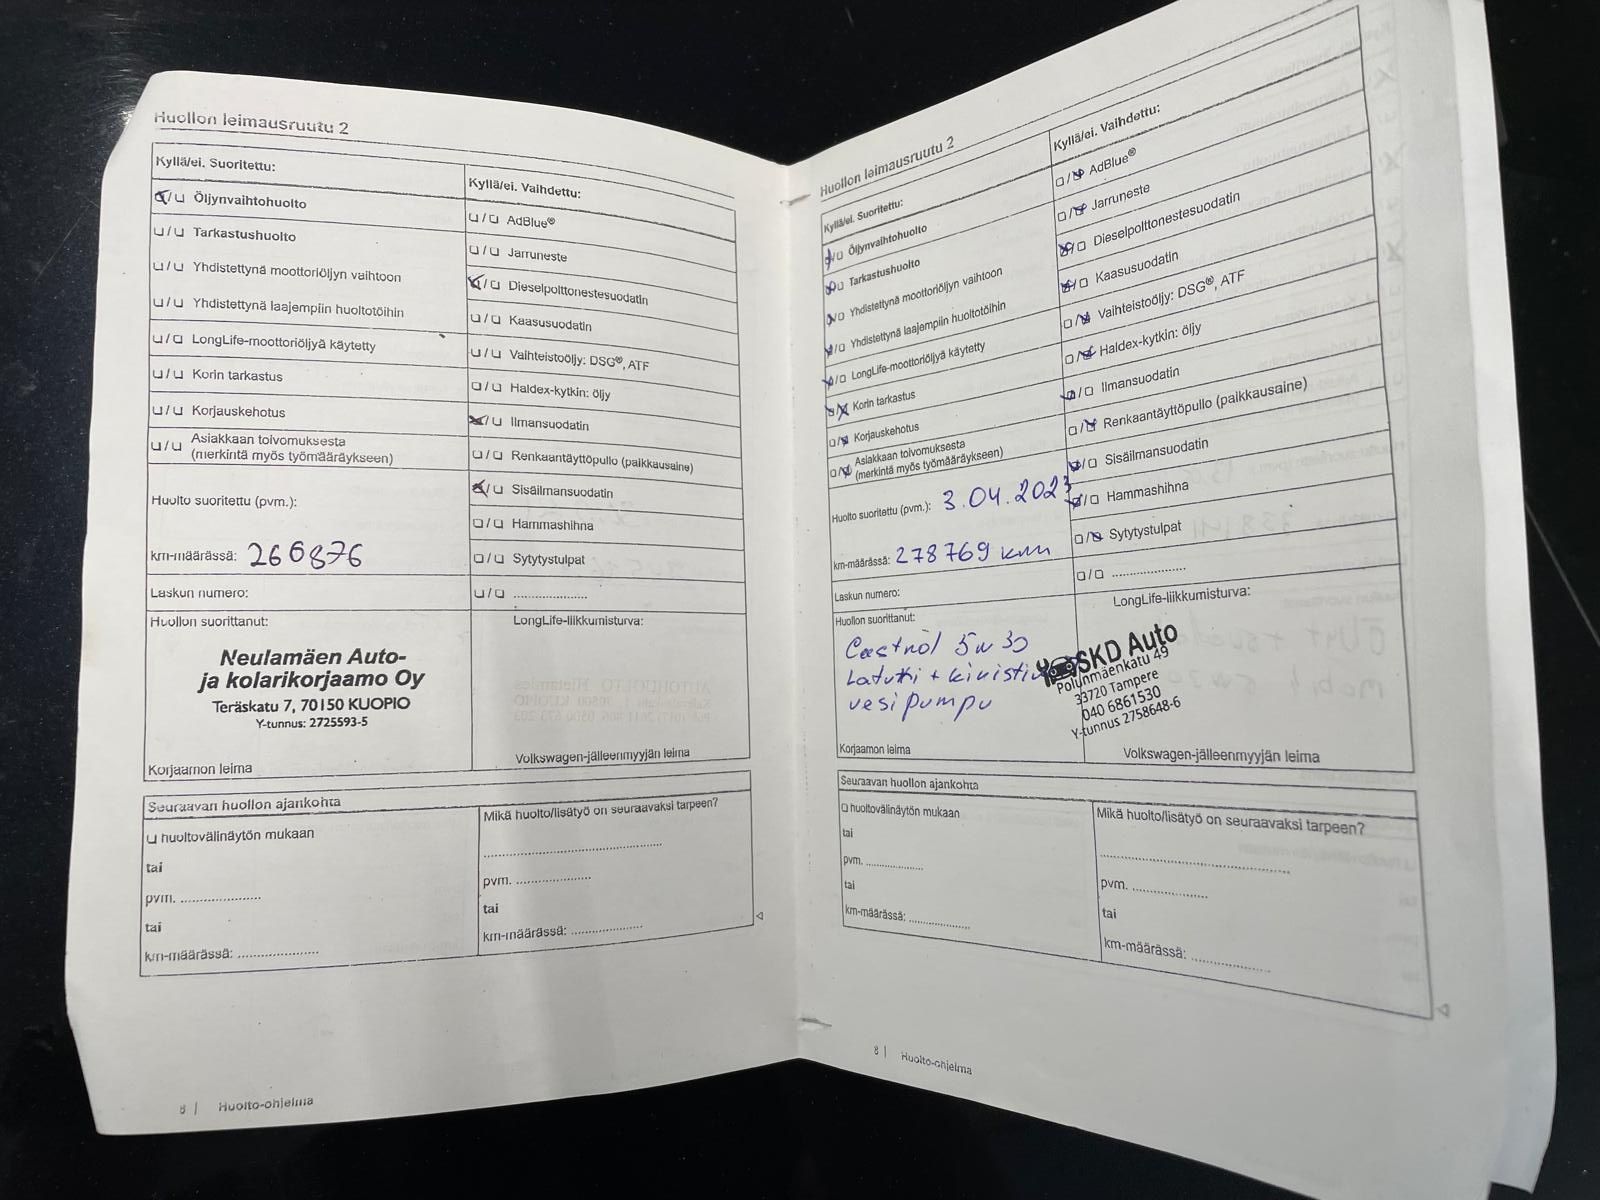 Huollon leimausruutu 2
Kyllä/ei. Suoritettu:
☒/☐ Öljynvaihtohuolto
☐/☐ Tarkastushuolto
☐/☐ Yhdistettynä moottoriöljyn vaihtoon
☐/☐ Yhdistettynä laajempiin huoltotöihin
☐/☐ LongLife-moottoriöljyä käytetty
☐/☐ Korin tarkastus
☐/☐ Korjauskehotus
☐/☐ Asiakkaan toivomuksesta
(merkintä myös työmääräykseen)
Huolto suoritettu (pvm.):
km-määrässä: 266876
Laskun numero:
Huollon suorittanut:
Neulamäen Auto-
ja kolarikorjaamo Oy
Teräskatu 7, 70150 KUOPIO
Y-tunnus: 2725593-5
Korjaamon leima
Kyllä/ei. Vaihdettu:
☐/☐ AdBlue®
☐/☐ Jarruneste
☒/☐ Dieselpolttonestesuodatin
☐/☐ Kaasusuodatin
☐/☐ Vaihteistoöljy: DSG®, ATF
☐/☐ Haldex-kytkin: öljy
☒/☐ Ilmansuodatin
☐/☐ Renkaantäyttöpullo (paikkausaine)
☒/☐ Sisäilmansuodatin
☐/☐ Hammashihna
☐/☐ Sytytystulpat
☐/☐ ....................
LongLife-liikkumisturva:
Volkswagen-jälleenmyyjän leima
Seuraavan huollon ajankohta
☐ huoltovälinäytön mukaan
tai
pvm. ......................
tai
km-määrässä: ......................
Mikä huolto/lisätyö on seuraavaksi tarpeen?
..................................................
pvm. ......................
tai
km-määrässä: ......................
8 | Huolto-ohjelma
Huollon leimausruutu 2
Kyllä/ei. Suoritettu:
☒/☐ Öljynvaihtohuolto
☒/☐ Tarkastushuolto
☒/☐ Yhdistettynä moottoriöljyn vaihtoon
☒/☐ Yhdistettynä laajempiin huoltotöihin
☒/☐ LongLife-moottoriöljyä käytetty
☐/☒ Korin tarkastus
☐/☒ Korjauskehotus
☐/☒ Asiakkaan toivomuksesta
(merkintä myös työmääräykseen)
Huolto suoritettu (pvm.): 3.04.2023
km-määrässä: 278769 km
Laskun numero:
Huollon suorittanut:
Castrol 5w30
Latutki +
vesipumpu
Korjaamon leima
Kyllä/ei. Vaihdettu:
☐/☒ AdBlue®
☐/☒ Jarruneste
☒/☐ Dieselpolttonestesuodatin
☒/☐ Kaasusuodatin
☐/☒ Vaihteistoöljy: DSG®, ATF
☐/☒ Haldex-kytkin: öljy
☒/☐ Ilmansuodatin
☐/☒ Renkaantäyttöpullo (paikkausaine)
☒/☐ Sisäilmansuodatin
☒/☐ Hammashihna
☐/☒ Sytytystulpat
☐/☐ ....................
LongLife-liikkumisturva:
SKD Auto
Polunmäenkatu 49
33720 Tampere
040 6861530
Y-tunnus 2758648-6
Volkswagen-jälleenmyyjän leima
Seuraavan huollon ajankohta
☐ huoltovälinäytön mukaan
tai
pvm. ................
tai
km-määrässä: ................
Mikä huolto/lisätyö on seuraavaksi tarpeen?
..................................................
pvm. ......................
tai
km-määrässä: ......................
8 | Huolto-ohjelma